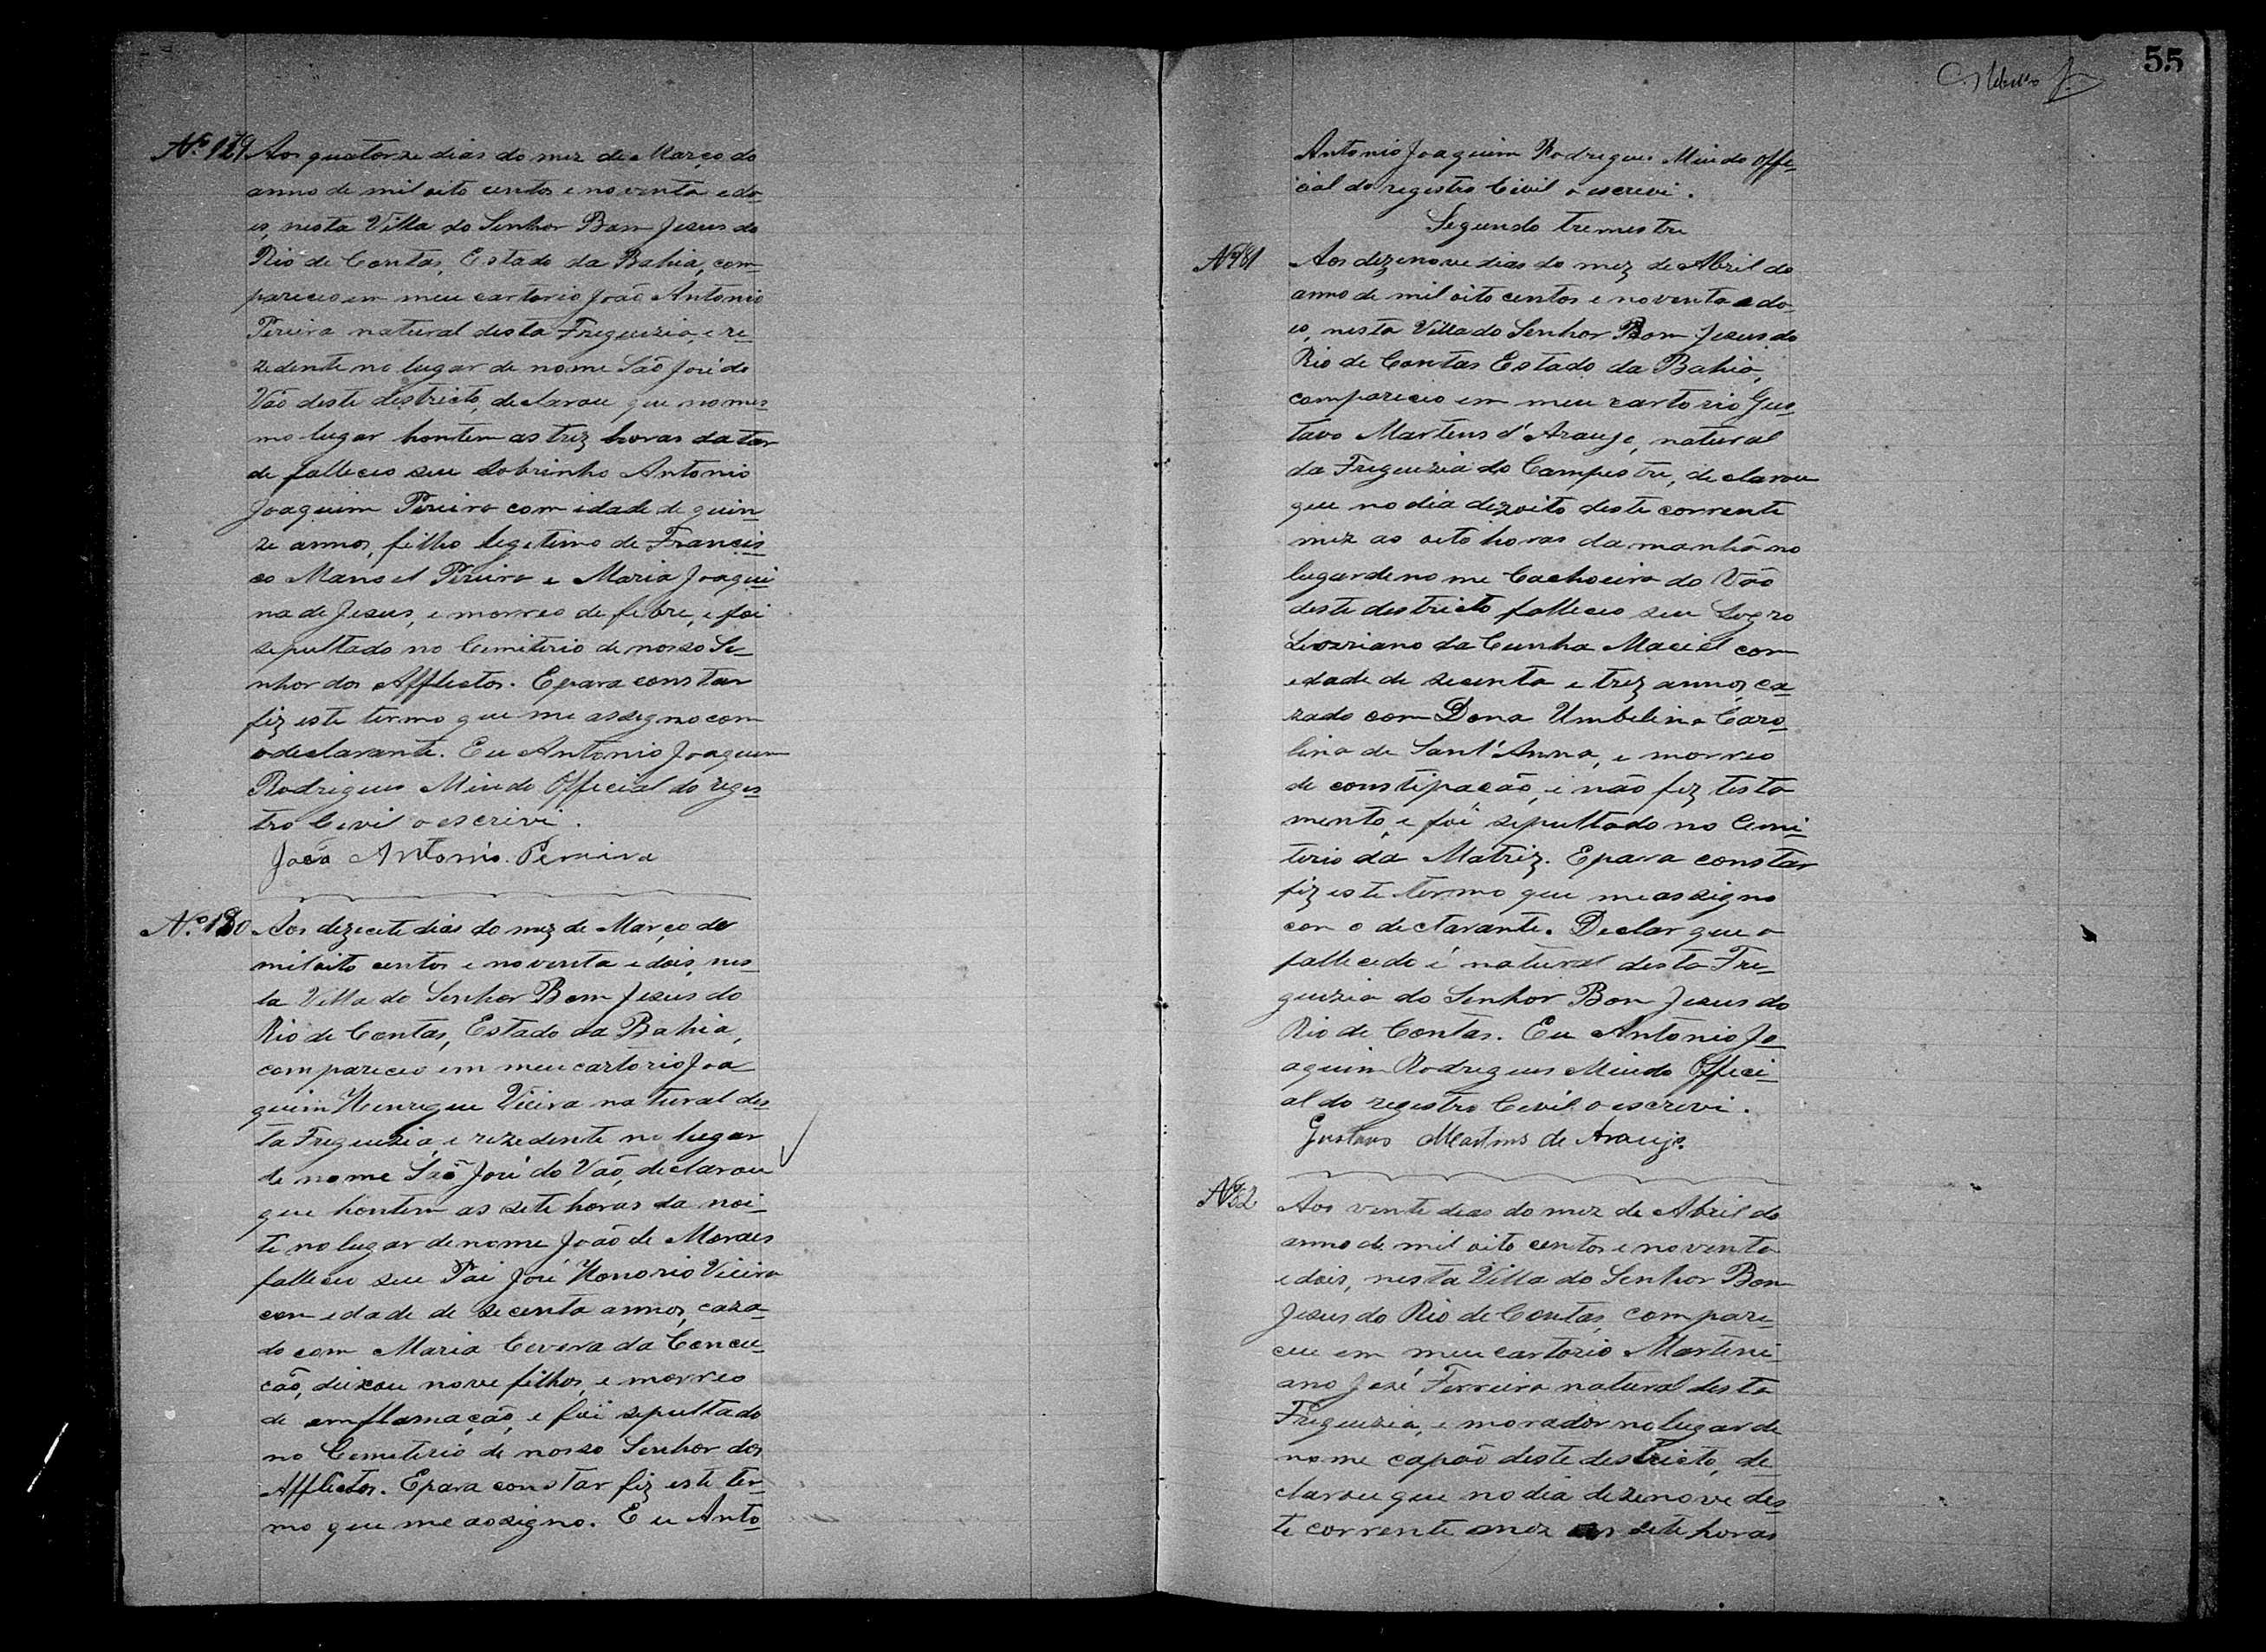 Nº 179 Aos quatorze dias do mez de Março do
anno de mil oito centos e noventa e do-
is, nesta Villa do Senhor Bom Jesus do
Rio de Contas, Estado da Bahia, com-
pareceo em meu cartorio João Antonio
Pereira natural desta Freguezia, e re-
zedente no lugar de nome São José do
Vão deste destricto, declarou que no mes-
mo lugar hontem as trez horas da tar
de falleceo seu sobrinho Antonio
Joaquim Pereira com idade de quin-
ze annos, filho legetimo de Francis-
co Manoel Pereira e Maria Joaqui
na de Jesus, e morreo de febre, e foi
sepultado no Cemiterio de nosso Se-
nhor dos Afflictos. Epara constar
fiz este termo que me assegno com
o declarante. Eu Antonio Joaquim
Rodrigues Miudo Official do reges-
tro Cevil o escrivi.
João Antonio Pereira
Nº 180 Aos dezecete dias do mez de Março de
mil oito centos e noventa e dois, nes-
ta Villa do Senhor Bom Jesus do
Rio de Contas, Estado da Bahia,
compareceo em meu cartorio Joa
quim Henrique Vieira natural des-
ta Freguezia, e rezedente no lugar
de nome São José do Vão, declarou
que hontem as sete horas da noi-
te no lugar de nome João de Moraes
falleceo seu Pai José Honorio Vieira
com edade de secenta annos, caza-
do com Maria Cevera da Concei-
cão, deixou nove filhos, e morreo
de emflamação, e foi sepultado
no Cemeterio de nosso Senhor dos
Afflictos. Epara constar fiz este ter-
mo que me assigno. Eu Anto-
55
Antonio Joaquim Rodrigues Miudo Offe-
cial do registro Civil o escrevi.
Segundo tremestre
Nº 181 Aos dezenove dias do mez de Abril do
anno de mil oito centos e noventa e do-
is, nesta Villa do Senhor Bom Jesus do
Rio de Contas Estado da Bahia,
compareceo em meu cartorio Gus-
tavo Martins d'Araujo, natural
da Freguezia do Campestre, declarou
que no dia dezoito deste corrente
mez as oito horas da manhã no
lugar de nome Cachoeira do Vão
deste destricto falleceo seu Sogro
da Cunha Maciel com
edade de secenta e trez annos, ca-
zado com Dona Umbelina Caro-
lina de Sant'Anna, e morreo
de constipação, e não fez testa
mento, e foi sepultado no Cemi-
terio da Matriz. Epara constar
fiz este termo que me assigno
com o declarante. Declar que o
fallecedo é natural desta Fre-
guezia do Senhor Bom Jesus do
Rio de Contas. Eu Antonio Jo-
aquim Rodrigues Miudo Offici-
al do registro Cevil o escrevi.
Gustavo Martins de Araujo.
Nº 182 Aos vente dias do mez de Abril do
anno de mil oito centos e noventa
e dois, nesta Villa do Senhor Bom
Jesus do Rio de Contas, compare-
ceu em meu cartorio Martini-
ano José Ferreira natural desta
Freguezia, e morador no lugar de
nome capão deste destricto, de-
clarou que no dia dezenove des-
te corrente mez as sete horas